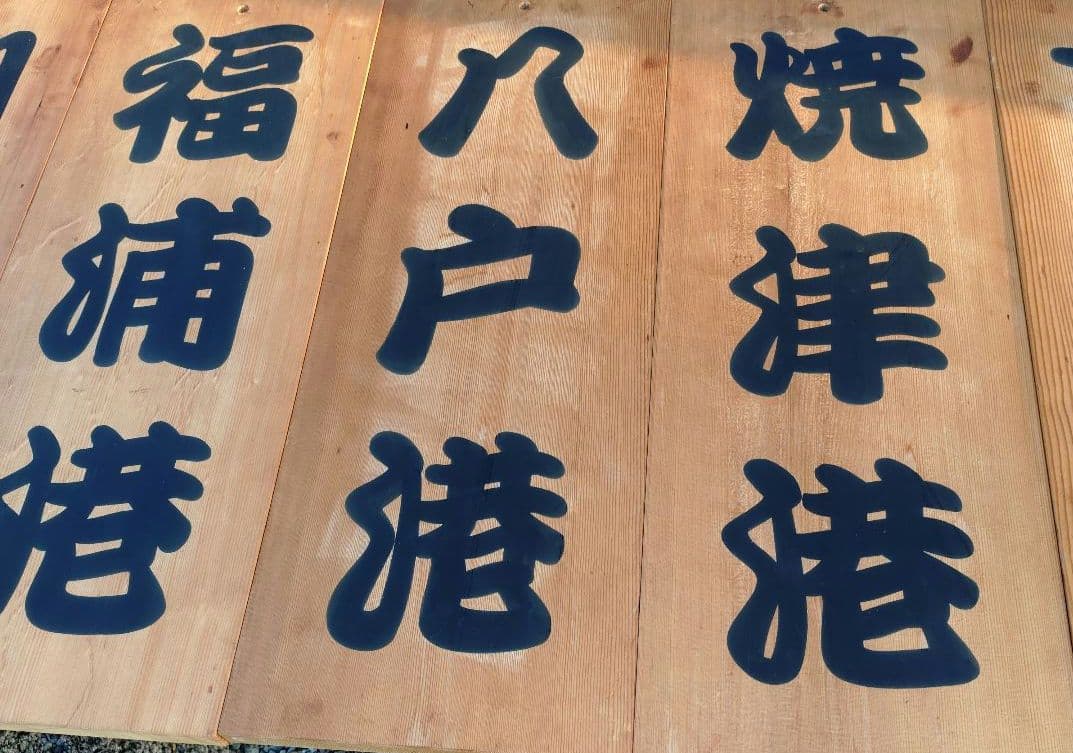 焼津港
八戸港
福浦港